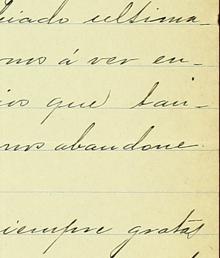 biado ultima-
mos á ver en-
ios que tan-
nos abandone.
siempre gratas